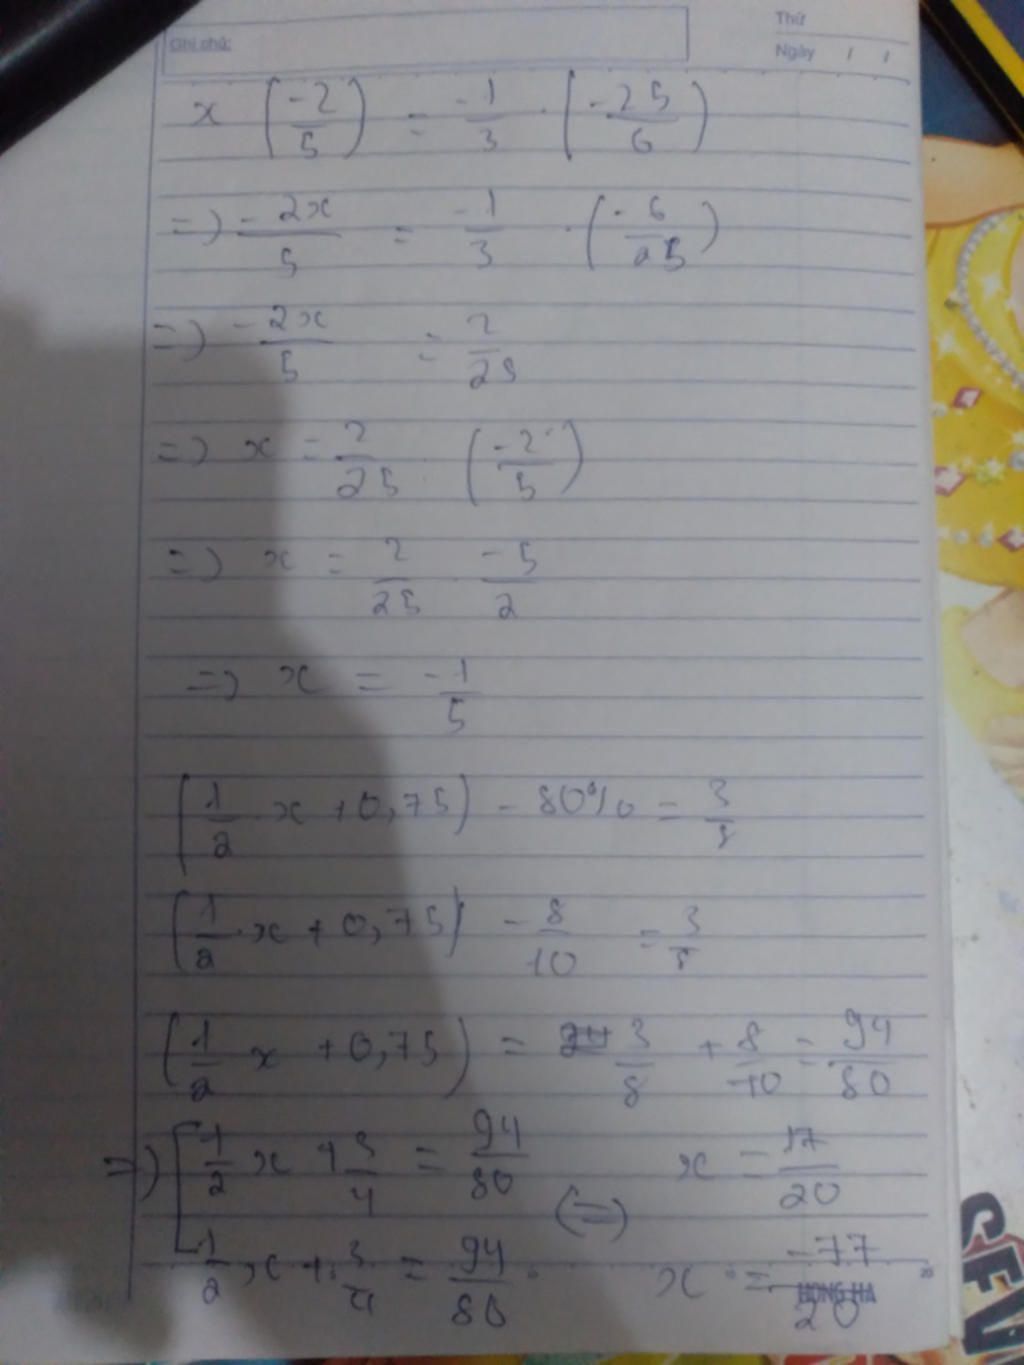 Thứ
Ghi chú:
Ngày / /
x (-2/5) = -1/3 · (-25/6)
=> -2x/5 = -1/3 · (-6/25)
=> -2x/5 = 2/25
=> x = 2/25 · (-2/5)
=> x = 2/25 · -5/2
=> x = -1/5
(1/2 x + 0,75) - 80% = 3/8
(1/2 · x + 0,75) - 8/10 = 3/8
(1/2 x + 0,75) = 3/8 + 8/10 = 94/80
=> [ 1/2 x + 3/4 = 94/80 (=) x = 17/20
1/2 x + 3/4 = 94/80 x = -77/20
HONG HA
SFV